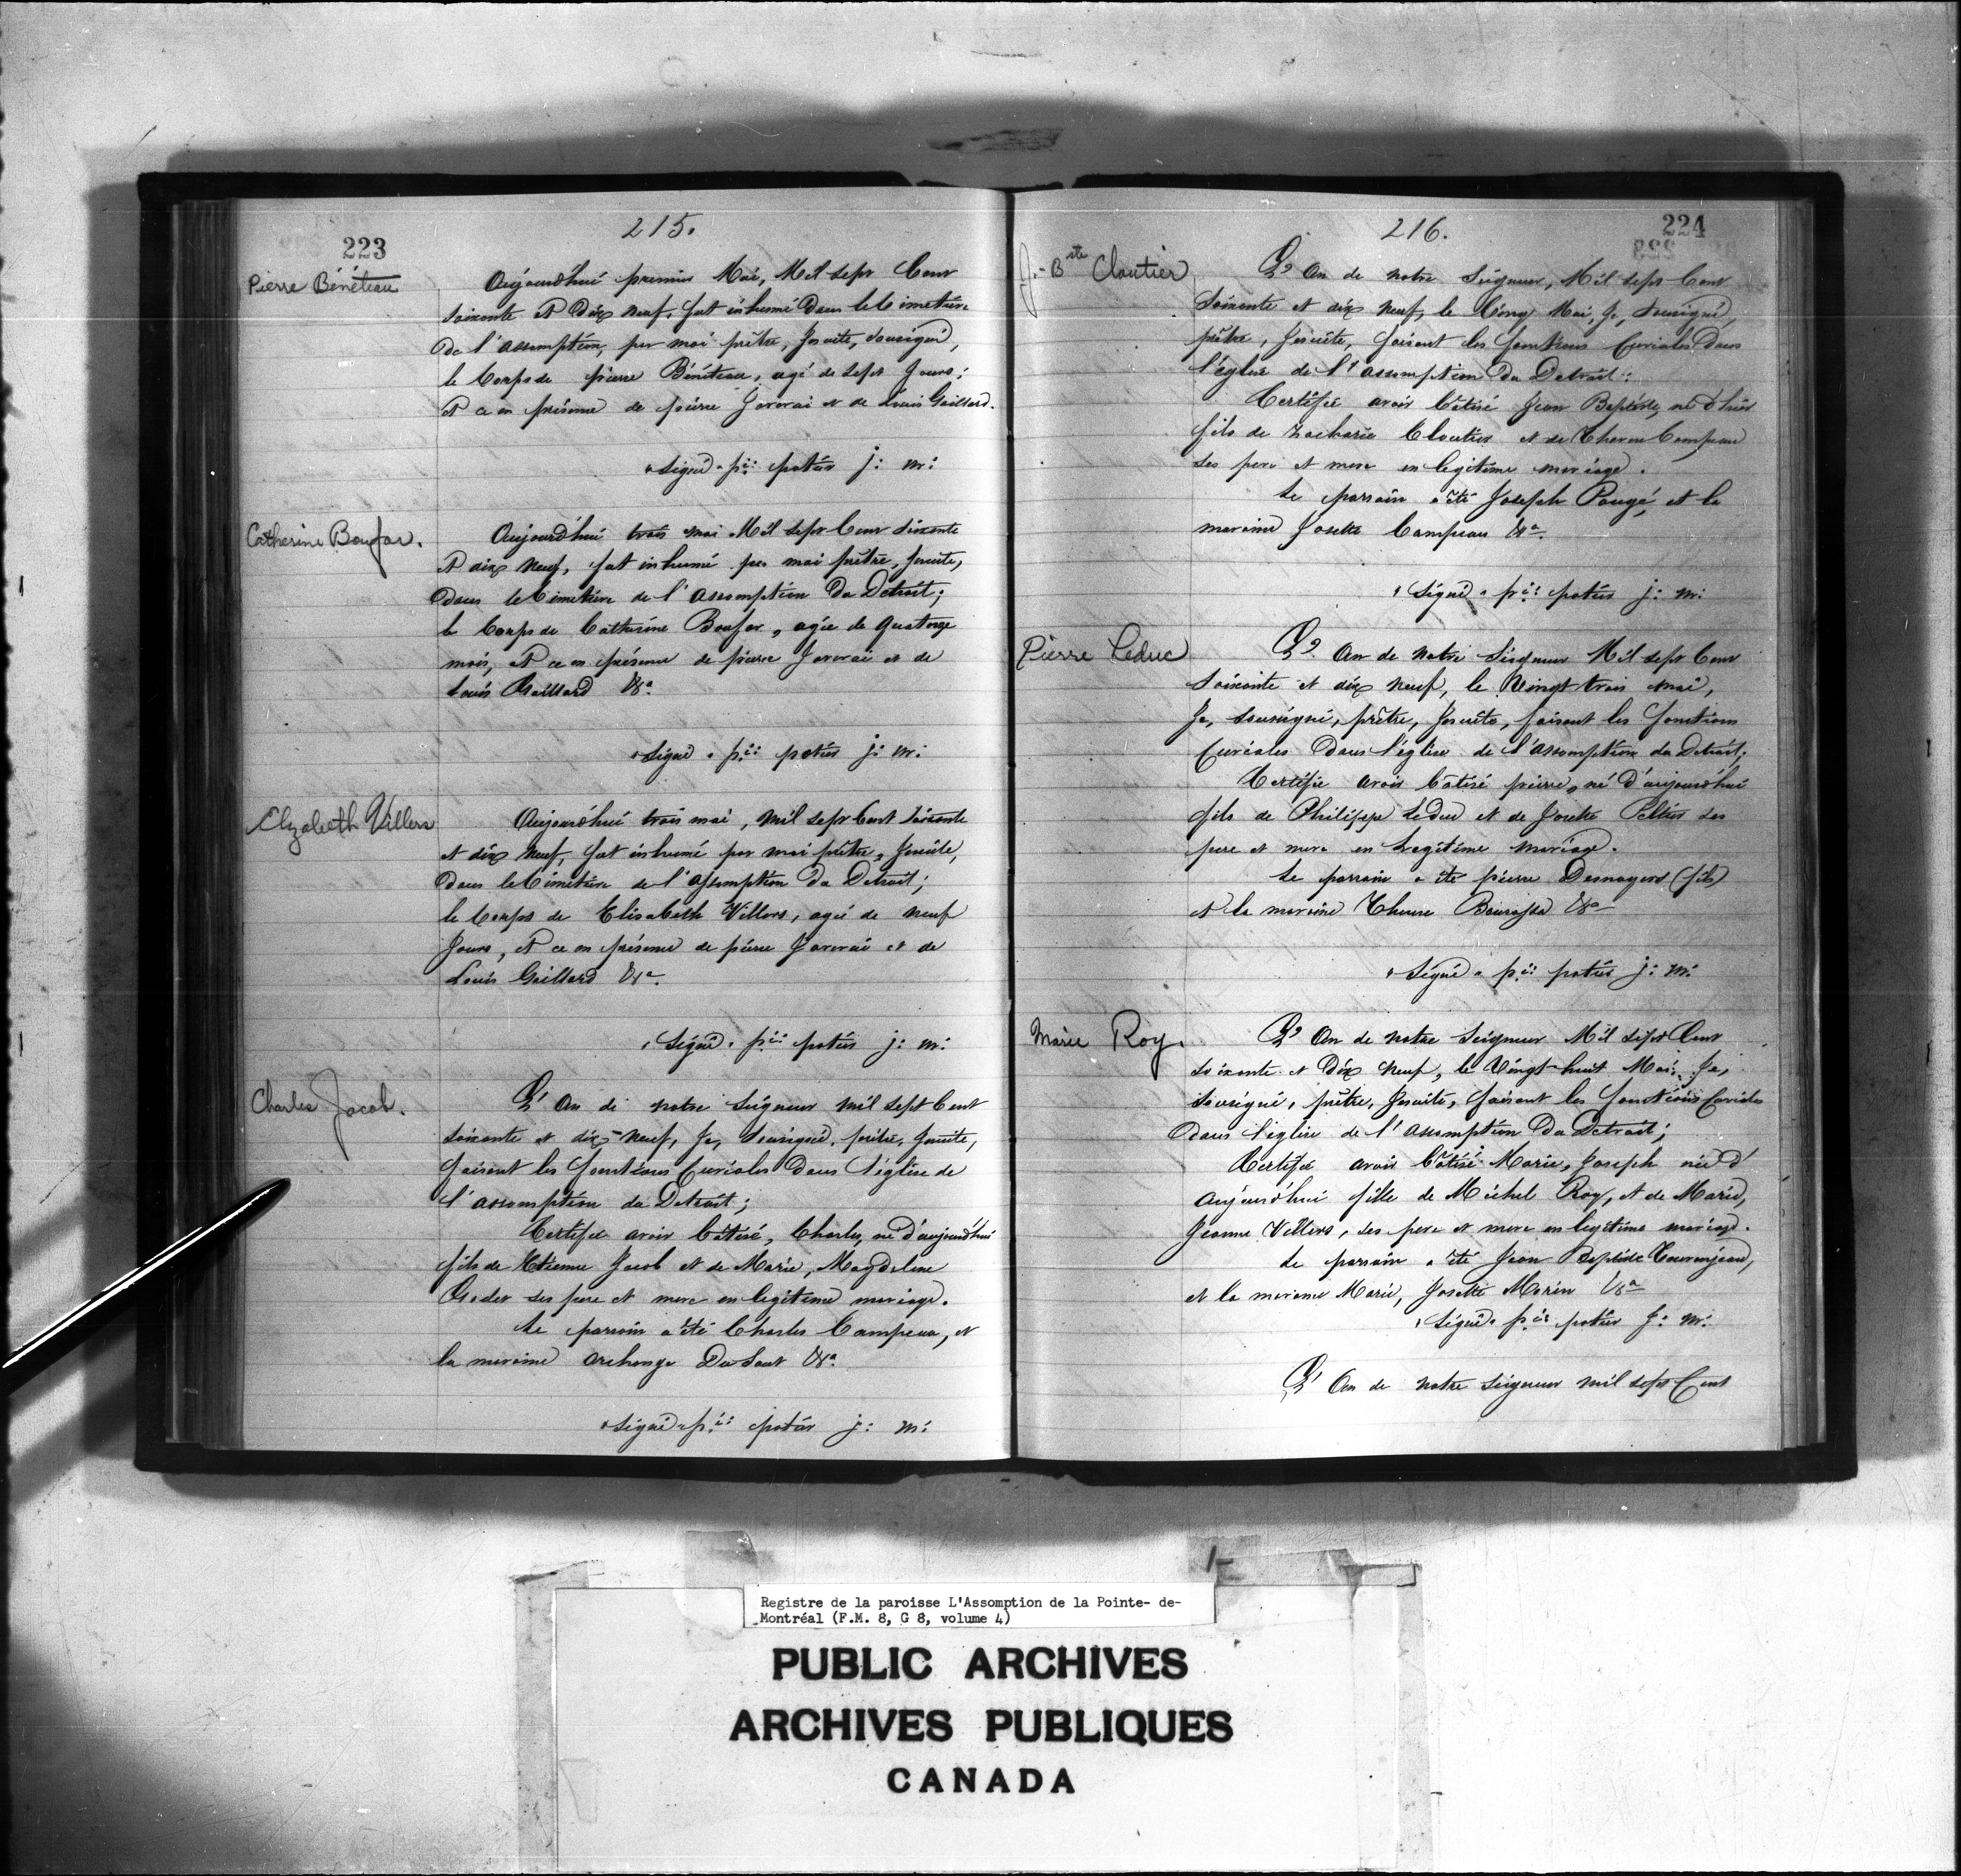 215.
223
Pierre Béneteau
Aujourd'hui premier Mai, Mil sept Cent
soixante et Dix neuf, fut inhumé Dans le Cimetiere
de l'assomption, par moi prêtre, Jesuite, Sousigné,
le Corps de pierre Béneteau, agé de sept Jours;
et ce en présence de pierre Javerai et de Louis Gaillard.
"Signé" pre: potier j: m:
Catherine Boufar.
Aujourd'hui trois mai Mil sept Cent soixante
et dix neuf, fut inhumé par moi prêtre, Jesuite,
Dans le Cimetiere de l'assomption Du Détroit;
le Corps de Catherine Boufar, agée de quatorze
mois, et ce en présence de pierre Javerai et de
Louis Gaillard &a.
"Signé" pre: potier j: m:
Elzabeth Villers
Aujourd'hui trois mai, mil sept Cent soixante
et dix neuf, fut inhumé par moi prêtre, Jesuite,
Dans le Cimetiere de l'assomption Du Detroit;
le Corps de Elisabeth Villers, agée de neuf
Jours, et ce en présence de pierre Javerai et de
Louis Gaillard &a.
"Signé" pre: potier j: m:
Charles Jacob.
L'An de notre Seigneur mil sept Cent
soixante et dix-neuf, Je, Sousigné, prêtre, Jesuite,
faisant les fonctions Curiales Dans l'église de
l'assomption du Detroit;
Certifie avoir bâtisé, Charles, né d'aujourd'hui
fils de Etienne Jacob et de Marie, Magdeleine
Godet ses pere et mere en legitime mariage.
Le parrain a été Charles Campeau, et
la maraine archange Du Saut &a.
"Signé" pre: potier j: m:
216.
224
J.-Bte Cloutier
L'An de notre Seigneur, Mil sept Cent
Soixante et dix neuf, le Cinq Mai, Je, Sousigné,
prêtre, Jesuite, faisant les fonctions Curiales Dans
l'église de l'assomption Du Detroit:
Certifie avoir bâtisé Jean Baptiste, né d'hier
fils de Zacharie Cloutier et de Therese Campeau
ses pere et mere en legitime mariage.
Le parrain a été Joseph Pougé, et la
maraine Josette Campeau &a.
"Signé" pre: potier j: m:
Pierre Leduc
L'An de notre Seigneur Mil sept Cent
Soixante et dix neuf, le Vingt trois mai,
Je, sousigné, prêtre, Jesuite, faisant les fonctions
Curiales Dans l'église de l'assomption du Detroit;
Certifie avoir bâtisé pierre, né d'aujourd'hui
fils de Philippe Le Duc et de Josette Peltier ses
pere et mere en Legitime mariage.
Le parrain a été pierre Desnoyers (fils)
et la maraine Therese Bourassa &a
"Signé" pre: potier j: m:
Marie Roy.
L'An de notre Seigneur Mil sept Cent
soixante et Dix neuf, le Vingt-huit Mai, Je,
sousigné, prêtre, Jesuite, faisant les fonctions Curiales
Dans l'église de l'assomption Du Detroit;
Certifie avoir bâtisé Marie, Joseph née d'
aujourd'hui fille de Michel Roy, et de Marie,
Jeanne Villers, ses pere et mere en legitime mariage.
Le parrain a été Jean Baptiste Tourenjeau,
et la maraine Marie, Josette Morin &a
"Signé" pre: potier j: m:
L'An de notre Seigneur mil sept Cent
Registre de la paroisse L'Assomption de la Pointe- de-
Montréal (F.M. 8, G 8, volume 4)
PUBLIC ARCHIVES
ARCHIVES PUBLIQUES
CANADA